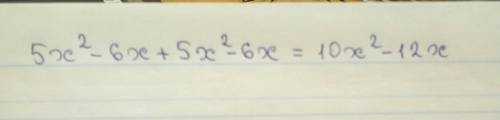 5x²-6x+5x²-6x = 10x²-12x